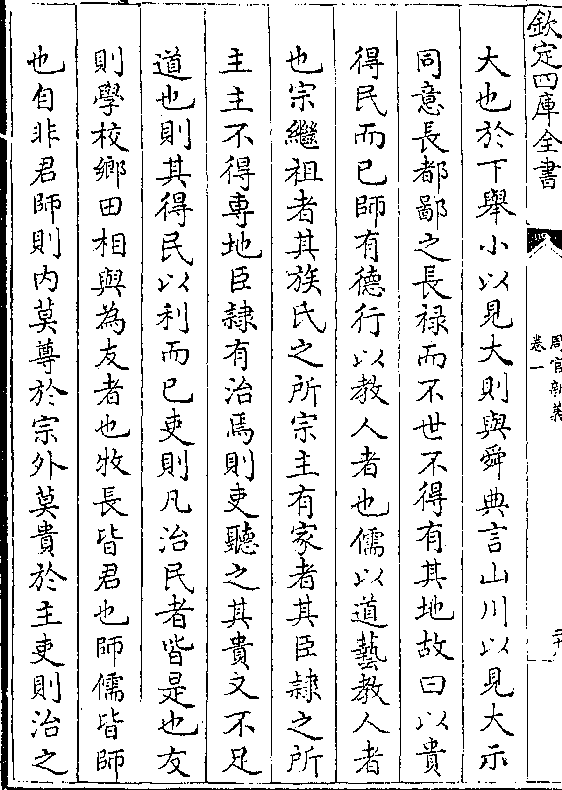 欽定四庫全書
周官新義
卷一
二十
大也於下舉小以見大則與舜典言山川以見大示
同意長都鄙之長禄而不世不得有其地故曰以貴
得民而已師有德行以教人者也儒以道藝教人者
也宗繼祖者其族氏之所宗主有家者其臣隷之所
主主不得專地臣隷有治焉則吏聽之其貴又不足
道也則其得民以利而已吏則凡治民者皆是也友
則學校鄉田相與為友者也牧長皆君也師儒皆師
也自非君師則内莫尊於宗外莫貴於主吏則治之